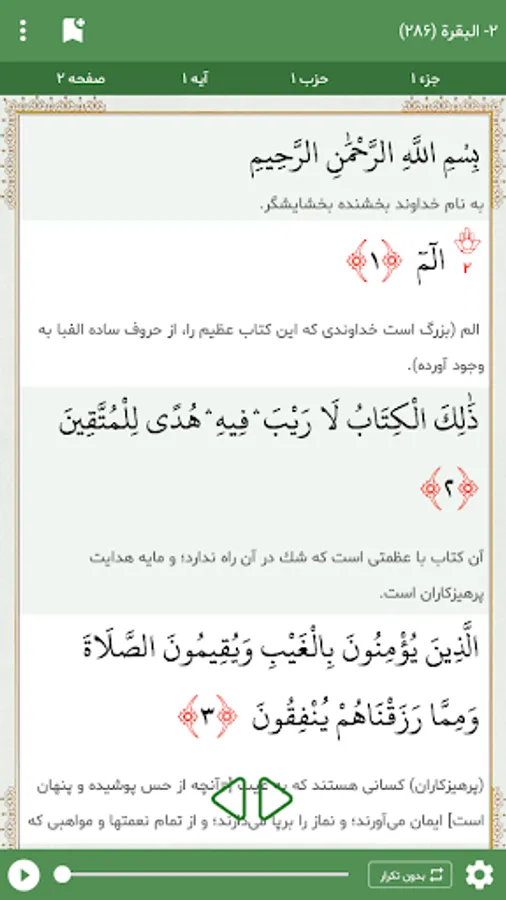 ۲- البقرة (۲۸۶)
جزء ۱ حزب ۱ آیه ۱ صفحه ۲
بِسْمِ اللَّهِ الرَّحْمَٰنِ الرَّحِيمِ
به نام خداوند بخشنده بخشایشگر.
الٓمٓ ﴿١﴾
۲
الم (بزرگ است خداوندی که این کتاب عظیم را، از حروف ساده الفبا به
وجود آورده).
ذَٰلِكَ الْكِتَابُ لَا رَيْبَ ۛ فِيهِ ۛ هُدًى لِلْمُتَّقِينَ
﴿٢﴾
آن کتاب با عظمتی است که شك در آن راه ندارد؛ و مایه هدایت
پرهیزکاران است.
الَّذِينَ يُؤْمِنُونَ بِالْغَيْبِ وَيُقِيمُونَ الصَّلَاةَ
وَمِمَّا رَزَقْنَاهُمْ يُنْفِقُونَ ﴿٣﴾
(پرهیزکاران) کسانی هستند که به غیب [=آنچه از حس پوشیده و پنهان
است] ایمان می‌آورند؛ و نماز را برپا می‌دارند؛ و از تمام نعمتها و مواهبی که
بدون تکرار